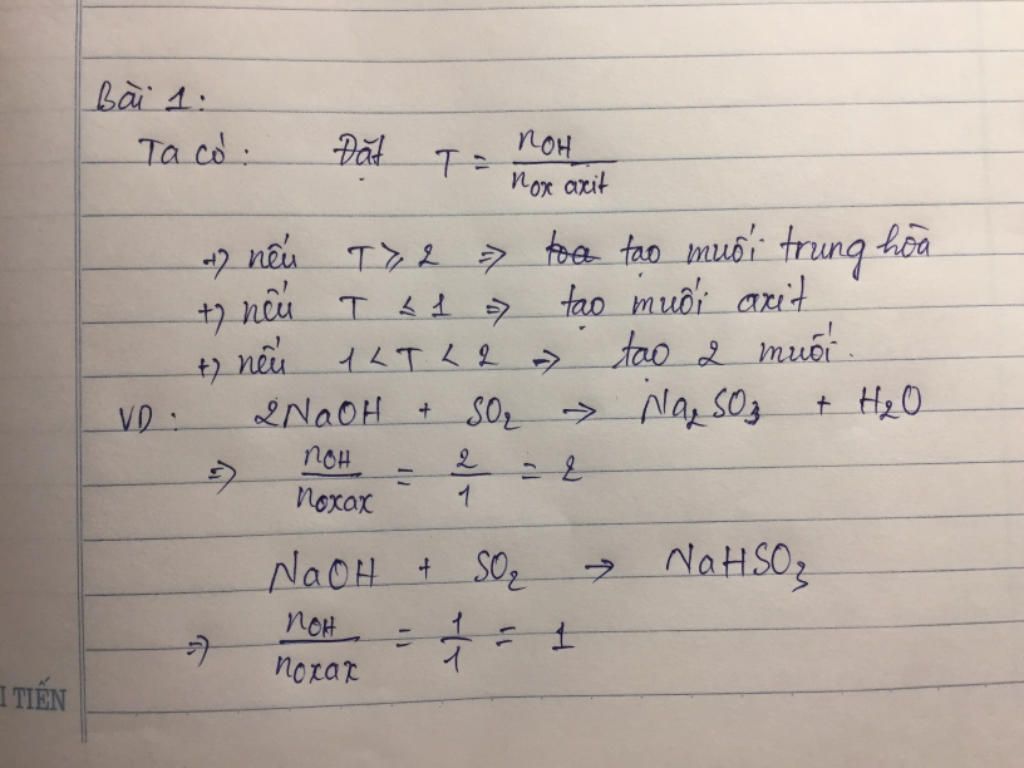 Bài 1:
Ta có: Đặt T = nOH / nox axit
+) nếu T ≥ 2 => toa tạo muối trung hòa
+) nếu T ≤ 1 => tạo muối axit
+) nếu 1 < T < 2 => tạo 2 muối.
VD: 2NaOH + SO2 -> Na2SO3 + H2O
=> nOH / noxax = 2/1 = 2
NaOH + SO2 -> NaHSO3
=> nOH / noxax = 1/1 = 1
I TIẾN